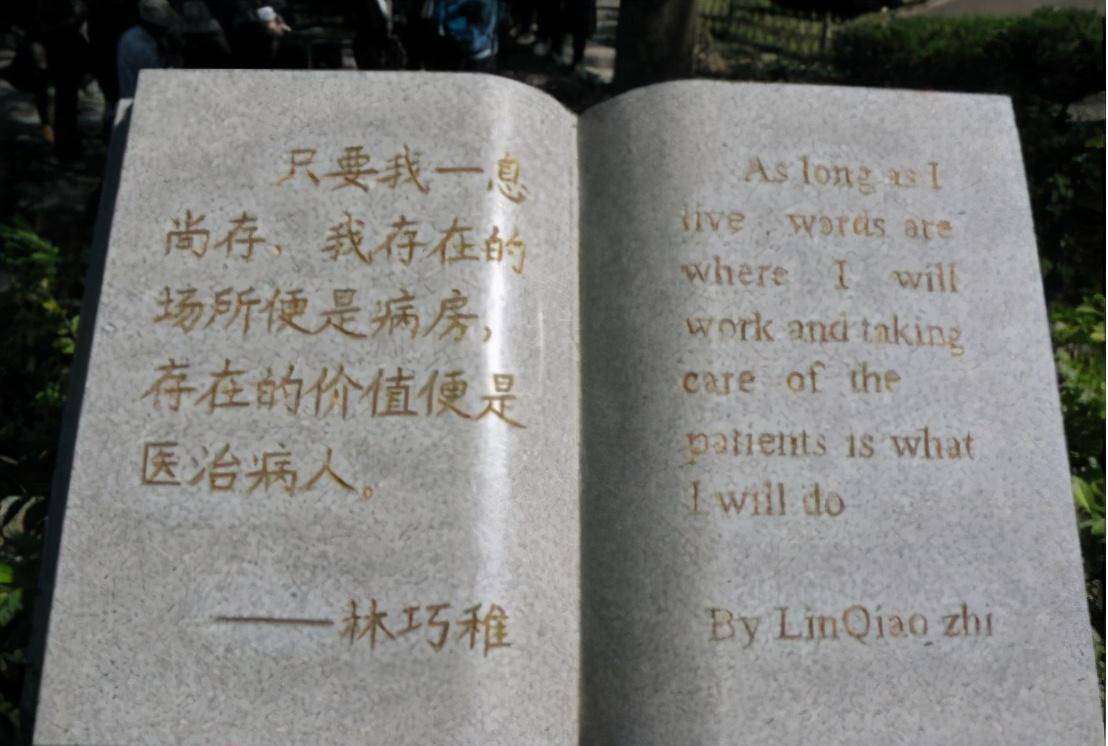 只要我一息
尚存、我存在的
场所便是病房,
存在的价值便是
医治病人。
——林巧稚
As long as I
live , words are
where I will
work and taking
care of the
patients is what
I will do
By LinQiao zhi